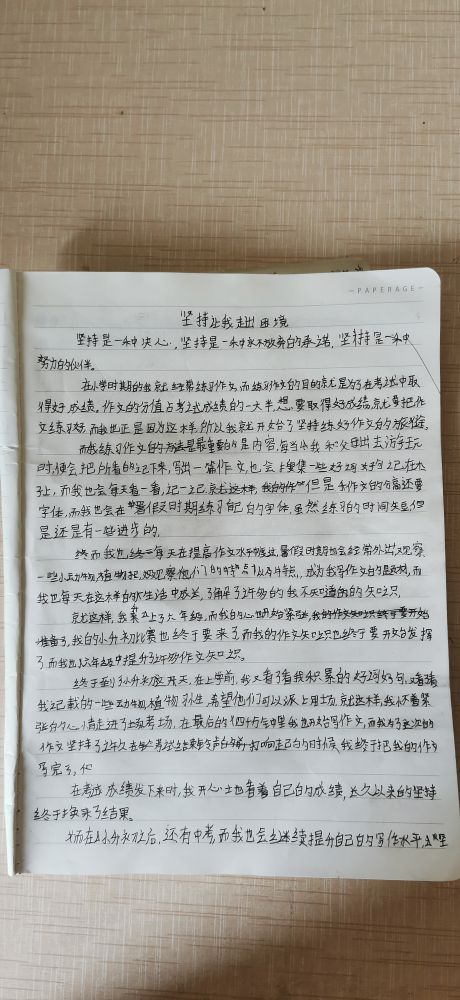 －PAPERAGE－
坚持让我走出困境
坚持是一种决心,坚持是一种永不放弃的承诺,坚持是一种
努力的伙伴。
在小学时期的我就经常练习作文,而练习作文的目的就是为了在考试中取
得好成绩。作文的分值占考试成绩的一大半,想要取得好成绩,就要把作
文练习好,而我也正是因为这样所以我就开始了坚持练好作文的旅途。
而我练习作文的方法是最重要的是内容,每当小我和父母出去游玩
时,便会把所看的记下来,写出一篇作文,也会上搜集一些好词好句记在本
子上,而我也会每天看一看,记一记就这样,我的作但是作文的分高还要
字体,而我也会在暑假时期练习自己的字体,虽然练习的时间久,但
是还是有一些进步的。
终而我也每天在提高作文水平,暑假时期也会经常外出,观察
一些小动物,植物把,观察他们的特点,以及特点,成为我写作文的题材,而
我也每天在这样的生活中成长,了解了许多的我不知道的知识。
就这样,我来上了六年级,而我的心也开始紧张,我的作文知识终于要开始
准备了,我的小升初比赛也终于要来了,而我的作文知识也终于要开始发挥
了而我也六年级中提升了许多作文知识。
终于到小升初那天,在上学前,我又看了看我积累的好词好句,又看看
我记载的一些动物植物习性,希望他们可以派上用场,就这样,我怀着紧
张的心情走进了考场,在最后的四十分钟里我也开始写作文,而我为了这次的
作文坚持了许久,在考试结束铃声打响起的时候,我终于把我的作文
写完了,
在考试成绩发下来时,我开心地看着自己的成绩,长久以来的坚持
终于换来了结果。
而在小升初之后,还有中考,而我也会继续提升自己的写作水平,坚